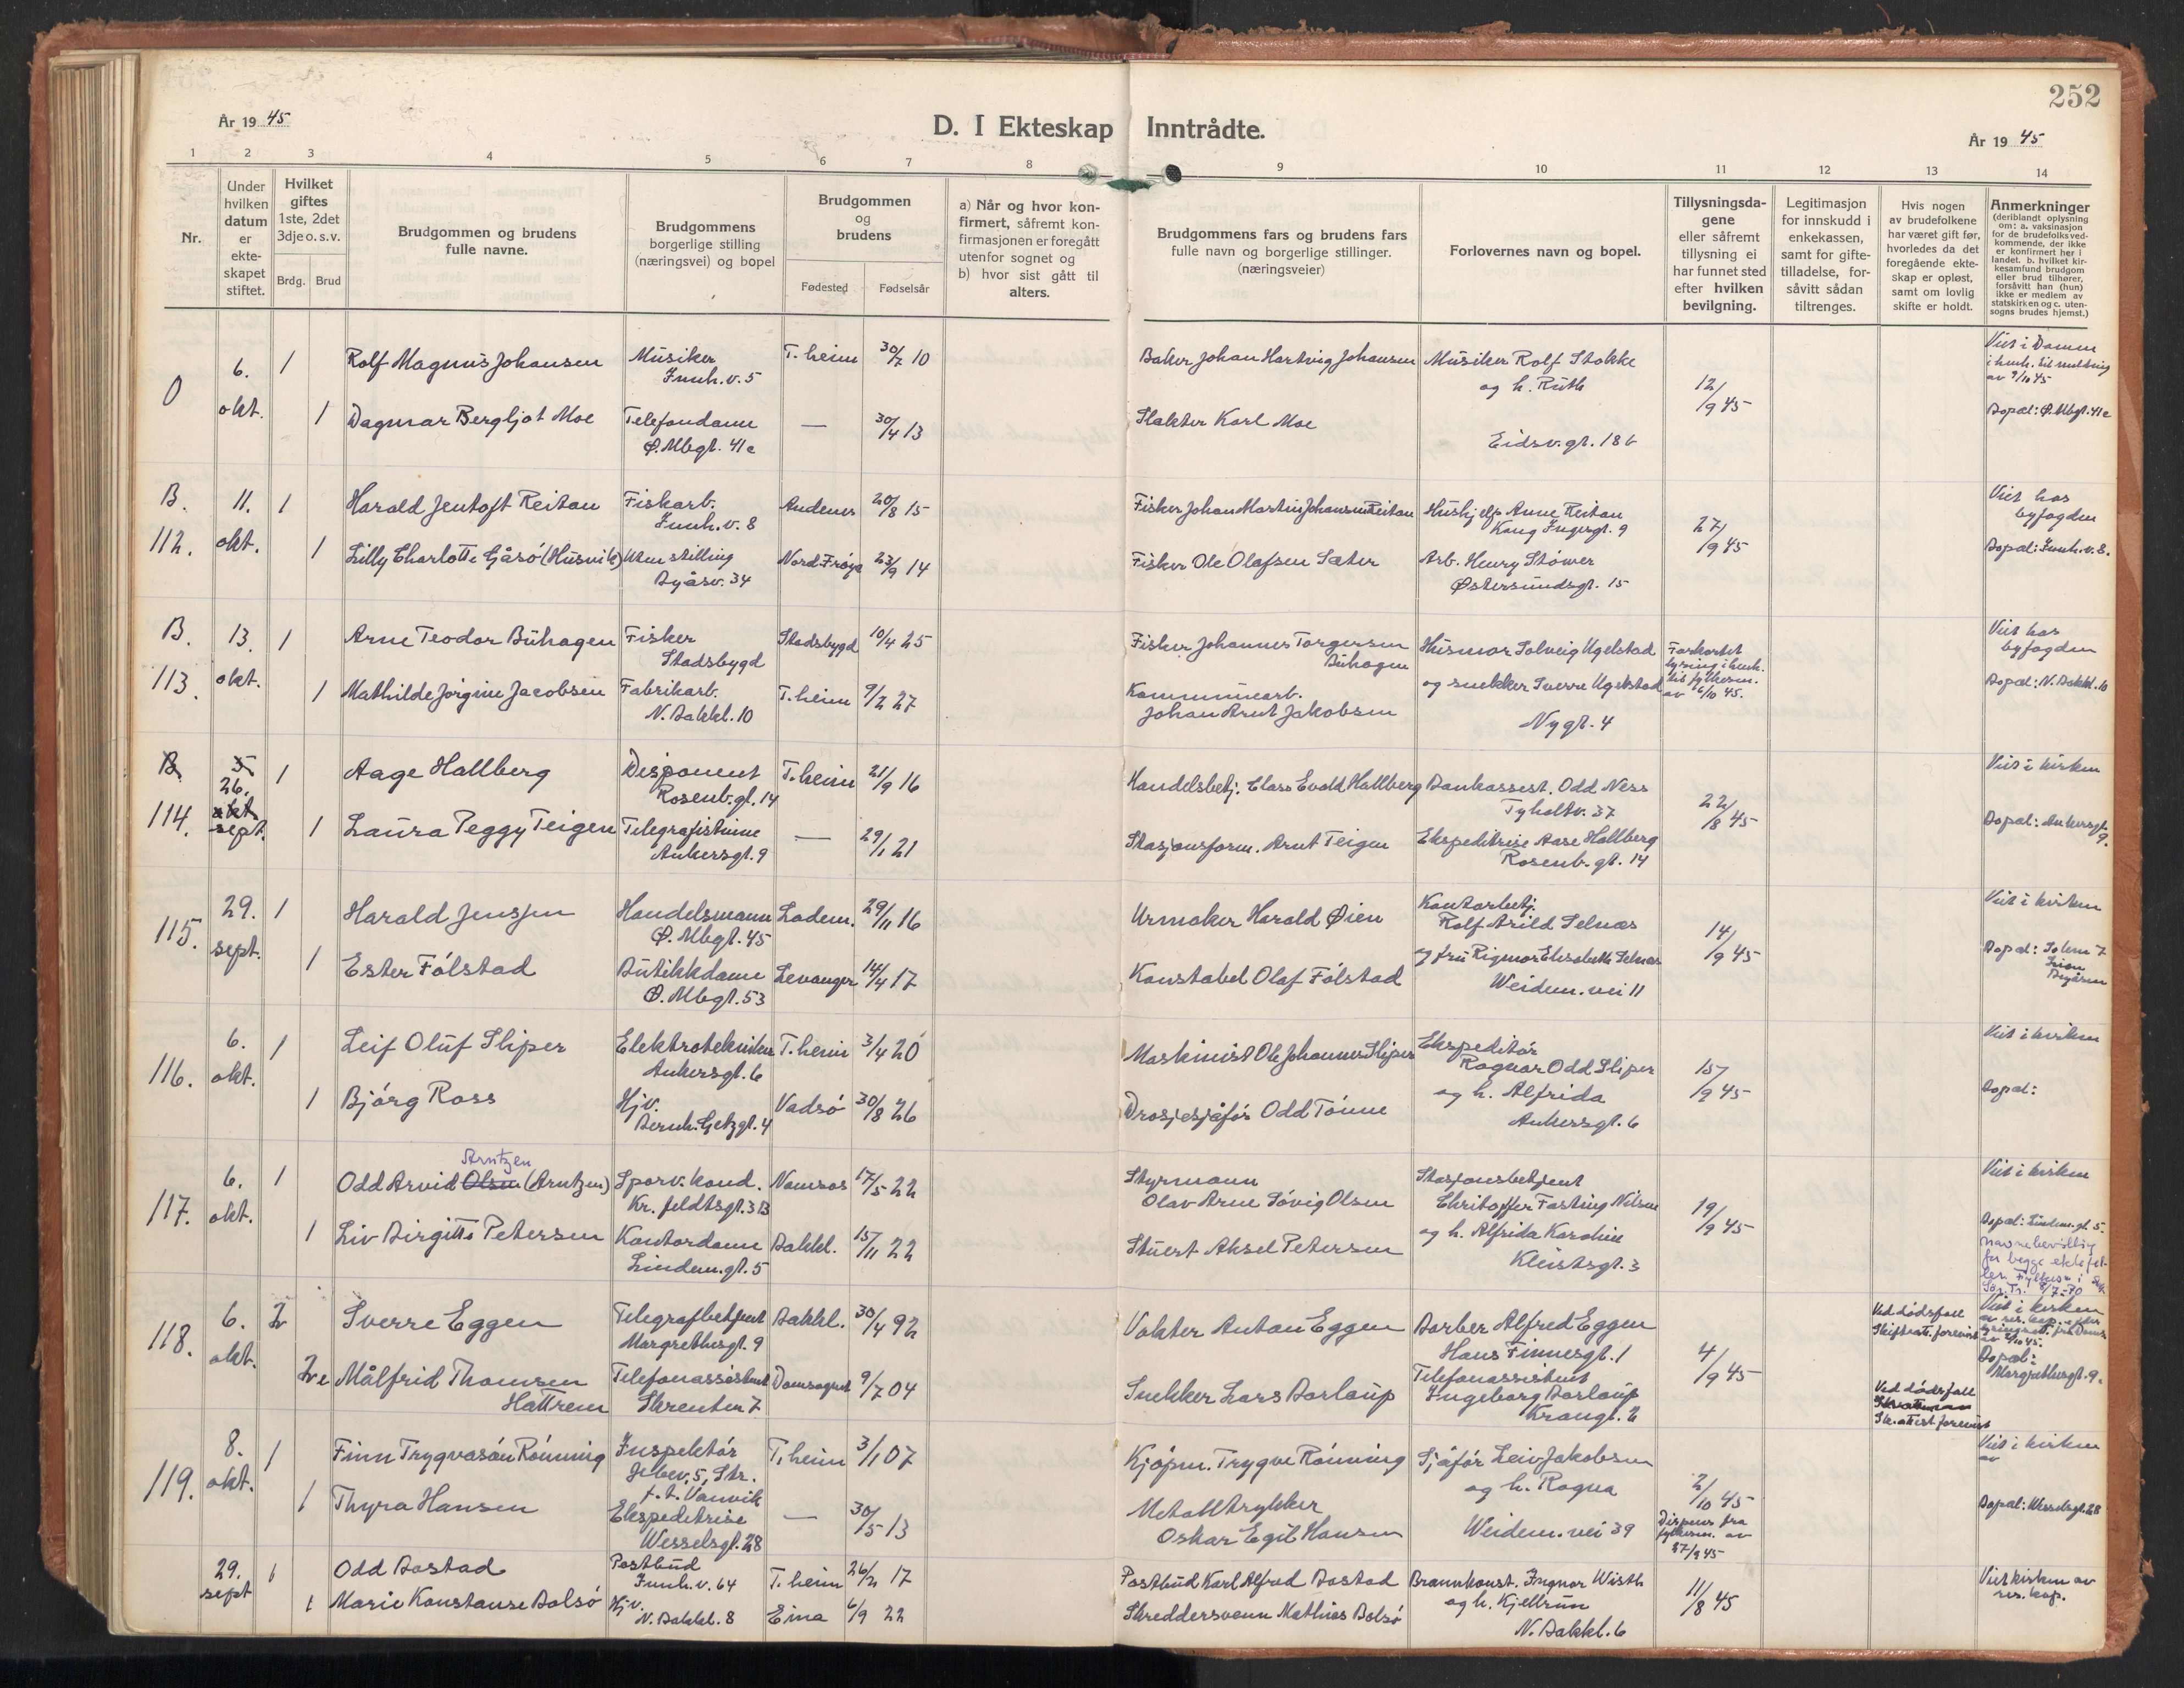 252
År 1945
D. I Ekteskap Inntrådte.
År 1945
1 2 3 4 5 6 7 8 9 10 11 12 13 14
Nr.
Under hvilken datum er ekte-skapet stiftet.
Hvilket giftes 1ste, 2det 3dje o.s.v.
Brdg. Brud
Brudgommen og brudens fulle navne.
Brudgommens borgerlige stilling (næringsvei) og bopel
Brudgommen og brudens
Fødested Fødselsår
a) Når og hvor kon-firmert, såfremt kon-firmasjonen er foregått utenfor sognet og
b) hvor sist gått til alters.
Brudgommens fars og brudens fars fulle navn og borgerlige stillinger. (næringsveier)
Forlovernes navn og bopel.
Tillysningsda-gene eller såfremt tillysning ei har funnet sted efter hvilken bevilgning.
Legitimasjon for innskudd i enkekassen, samt for gifte-tilladelse, for-såvitt sådan tiltrenges.
Hvis nogen av brudefolkene har været gift før, hvorledes da det foregående ekte-skap er opløst, samt om lovlig skifte er holdt.
Anmerkninger (deriblandt oplysning om: a. vaksinasjon for de brudefolks ved-kommende, der ikke er konfirmert her i landet. b. hvilket kir-kesamfund brudgom eller brud tilhører, forsåvitt han (hun) ikke er medlem av statskirken og c. uten-sogns brudes hjemst.)
0 6. okt. 1 Rolf Magnus Johansen Musiker Innh.v. 5 T.heim 30/7 10 Baker Johan Hartvig Johansen Musiker Rolf Stokke og h. Ruth 12/9 45 Viet i Domen i henh. til melding av 9/10 45
1 Dagmar Bergljot Moe Telefondame Ø. Mbgt. 41c — 30/4 13 Slakter Karl Moe Eidsv.gt. 18b Bopæl: Ø. Mbgt. 41c
B. 112. 11. okt. 1 Harald Jentoft Reitan Fiskarb. Innh.v. 8 Andenes 20/8 15 Fisker Johan Martin Johansen Reitan Hushjelp Anne Reitan Kong Ingesgt. 9 27/9 45 Viet hos byfogden
1 Lilly Charlotte Gåsø (Husvik) Uten stilling Byåsv. 34 Nord Frøya 23/9 14 Fisker Ole Olafsen Sæter Arb. Henry Støwer Østersundsgt. 15 Bopæl: Innh.v. 8.
B. 113. 13. okt. 1 Arne Teodor Buhagen Fisker Stadsbygd Stadsbygd 10/4 25 Fisker Johannes Torgersen Buhagen Husmor Solveig Ugelstad Forkortet lysning i henh. til fylkesm. av 6/10 45. Viet hos byfogden
1 Mathilde Jørgine Jacobsen Fabrikarb. N. Bakkl. 10 T.heim 9/2 27 Kommunearb. Johan Arnt Jakobsen og snekker Sverre Ugelstad Nygt. 4 Bopæl: N. Bakkl. 10
B. 114. 5 26. okt. sept. 1 Aage Hallberg Disponent Rosenb.gt. 14 T.heim 21/9 16 Handelsbetj. Claes Evald Hallberg Bankassist. Odd Ness Tyholtv. 37 22/8 45 Viet i kirken
1 Laura Peggy Teigen Telegrafistinne Ankersgt. 9 — 29/1 21 Stasjonsform. Arnt Teigen Ekspeditrise Aase Hallberg Rosenb.gt. 14 Bopæl: Ankersgt. 9.
115. 29. sept. 1 Harald Jenssen Handelsmann Ø. Mbgt. 45 Ladem. 29/11 16 Urmaker Harald Øien Kontorbetj. Rolf Arild Selnæs 14/9 45 Viet i kirken
1 Ester Følstad Butikkdame Ø. Mbgt. 53 Levanger 14/4 17 Konstabel Olaf Følstad og fru Rigmor Elisabeth Selnæs Weidem. vei 11 Bopæl: Solem 7
116. 6. okt. 1 Leif Oluf Sliper Elektrotekniker Ankersgt. 6 T.heim 3/4 20 Maskinist Ole Johannes Sliper Ekspeditør Ragnar Odd Sliper 15/9 45 Viet i kirken
1 Bjørg Ross Hjv. Bernh. Getzgt. 4 Vadsø 30/8 26 Drosjesjåfør Odd Tønne og h. Alfrida Ankersgt. 6 Bopæl:
Arntzen
117. 6. okt. 1 Odd Arvid Olsen (Arntzen) Sporv.kond. Kr. feldtsgt. 3B Namsos 17/5 22 Styrmann Olav Arne Søvig Olsen Stasjonsbetjent Christoffer Fasting Nilsen 19/9 45 Viet i kirken
1 Liv Birgitte Petersen Kontordame Lindem.gt. 5 Bakkl. 15/11 22 Stuert Aksel Petersen og h. Alfrida Karoline Kleistsgt. 3 Bopæl: Lindem.gt. 5
navnebevilling for begge ektefel-ler. Fylkesm. i Sør-Tr. 8/7-70
118. 6. okt. 2 Sverre Eggen Telegrafbetjent Margrethesgt. 9 Bakkl. 30/4 92 Vakter Anton Eggen Barber Alfred Eggen Hans Finnesgt. 1 4/9 45 Ved dødsfall Skifteatt. forevist Viet i kirken av res. kap.
2 Målfrid Thomsen Hattrem Telefonassistent Skrenten 7 Domsognet 9/7 04 Snekker Lars Barlaup Telefonassistent Ingeborg Barlaup Krangt. 2 Ved dødsfall Sk.attest forevist Bopæl: Margrethesgt. 9.
119. 8. okt. 1 Finn Trygvasøn Rønning Inspektør Jebev. 5, Str. f. t. Vanvik T.heim 3/1 07 Kjøpm. Trygve Rønning Sjåfør Leiv Jakobsen og h. Ragna 2/10 45 Viet i kirken av
1 Thyra Hansen Ekspeditrise Wesselsgt. 28 — 30/5 13 Metalltrykker Oskar Egil Hansen Weidem. vei 39 Dispens fra fylkesm. av 27/9 45 Bopæl: Wesselsgt. 28
29. sept 1 Odd Bostad Postbud Innh.v. 64 T.heim 26/2 17 Postbud Karl Alfred Bostad Brannkonst. Ingvar Wisth og h. Kjellrun 11/8 45 Viet kirken av res. kap.
1 Marie Konstanse Bolsø Hjv. N. Bakkl. 8 Eina 6/9 22 Skreddersvenn Mathias Bolsø N. Bakkl. 6